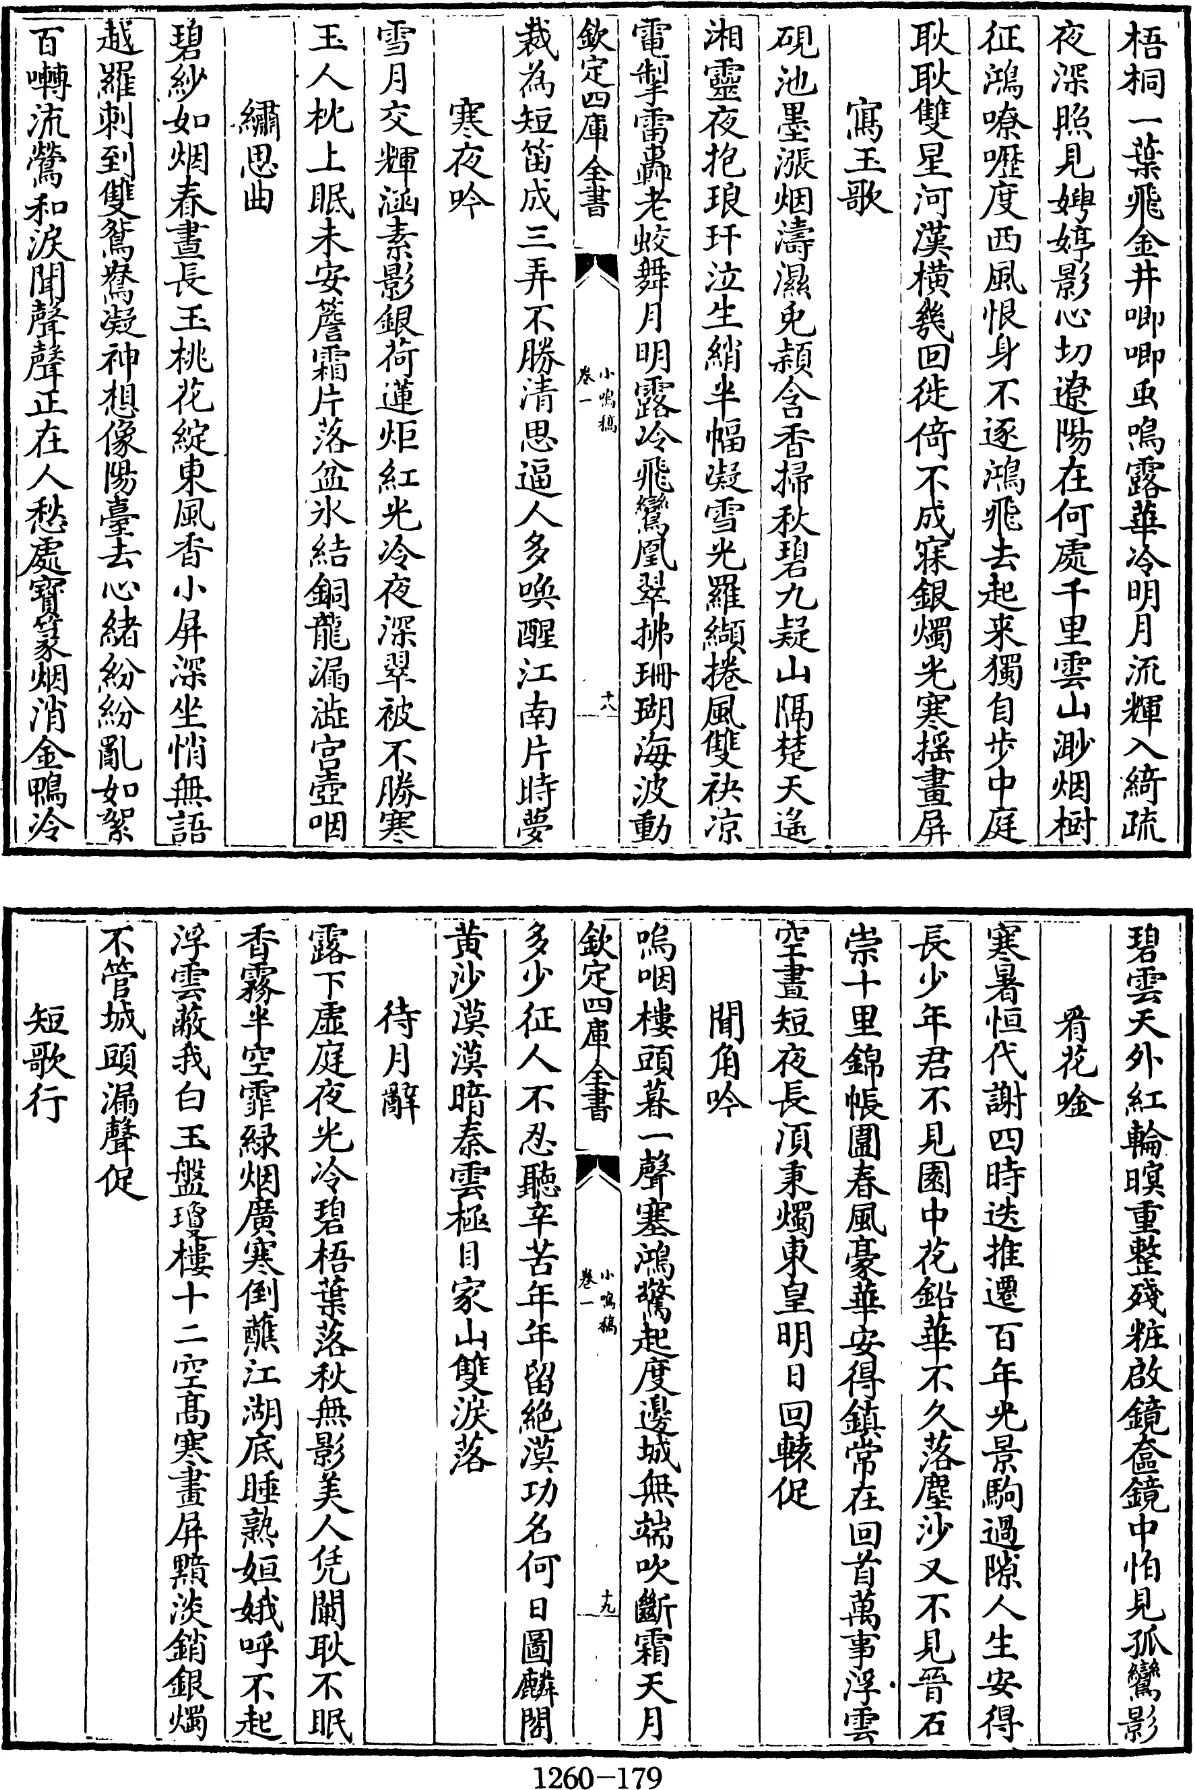 梧桐一葉飛金井唧唧虫鳴露華冷明月流輝入綺疏
夜深照見娉婷影心切遼陽在何處千里雲山渺烟樹
征鴻嘹嚦度西風恨身不逐鴻飛去起來獨自步中庭
耿耿雙星河漢橫幾回徙倚不成寐銀燭光寒摇畫屏
寫玉歌
硯池墨漲烟濤濕兎穎含香掃秋碧九疑山隔楚天遙
湘靈夜抱琅玕泣生綃半幅凝雪光羅纈捲風雙袂凉
電掣雷轟老蛟舞月明露冷飛鸞凰翠拂珊瑚海波動
欽定四庫全書
小鳴稿
卷一
十八
裁為短笛成三弄不勝清思逼人多喚醒江南片時夢
寒夜吟
雪月交輝涵素影銀荷蓮炬紅光冷夜深翠被不勝寒
玉人枕上眠未安簷霜片落盆氷結銅龍漏澁宫壺咽
繡思曲
碧紗如烟春晝長玉桃花綻東風香小屏深坐悄無語
越羅刺到雙鴛鴦凝神想像陽臺去心緒紛紛亂如絮
百囀流鶯和淚聞聲聲正在人愁處寶篆烟消金鴨冷
碧雲天外紅輪暝重整殘粧啟鏡奩鏡中怕見孤鸞影
看花唫
寒暑恒代謝四時迭推遷百年光景駒過隙人生安得
長少年君不見園中花鉛華不久落塵沙又不見晉石
崇十里錦帳圍春風豪華安得鎮常在回首萬事浮雲
空晝短夜長湏秉燭東皇明日回轅促
聞角吟
嗚咽樓頭暮一聲塞鴻驚起度邊城無端吹斷霜天月
欽定四庫全書
小鳴稿
卷一
十九
多少征人不忍聽辛苦年年留絶漠功名何日圖麟閣
黄沙漠漠暗秦雲極目家山雙淚落
待月辭
露下虛庭夜光冷碧梧葉落秋無影美人凭闌耿不眠
香霧半空霏緑烟廣寒倒蘸江湖底睡熟姮娥呼不起
浮雲蔽我白玉盤瓊樓十二空髙寒畫屏黯淡銷銀燭
不管城頭漏聲促
短歌行
1260-179